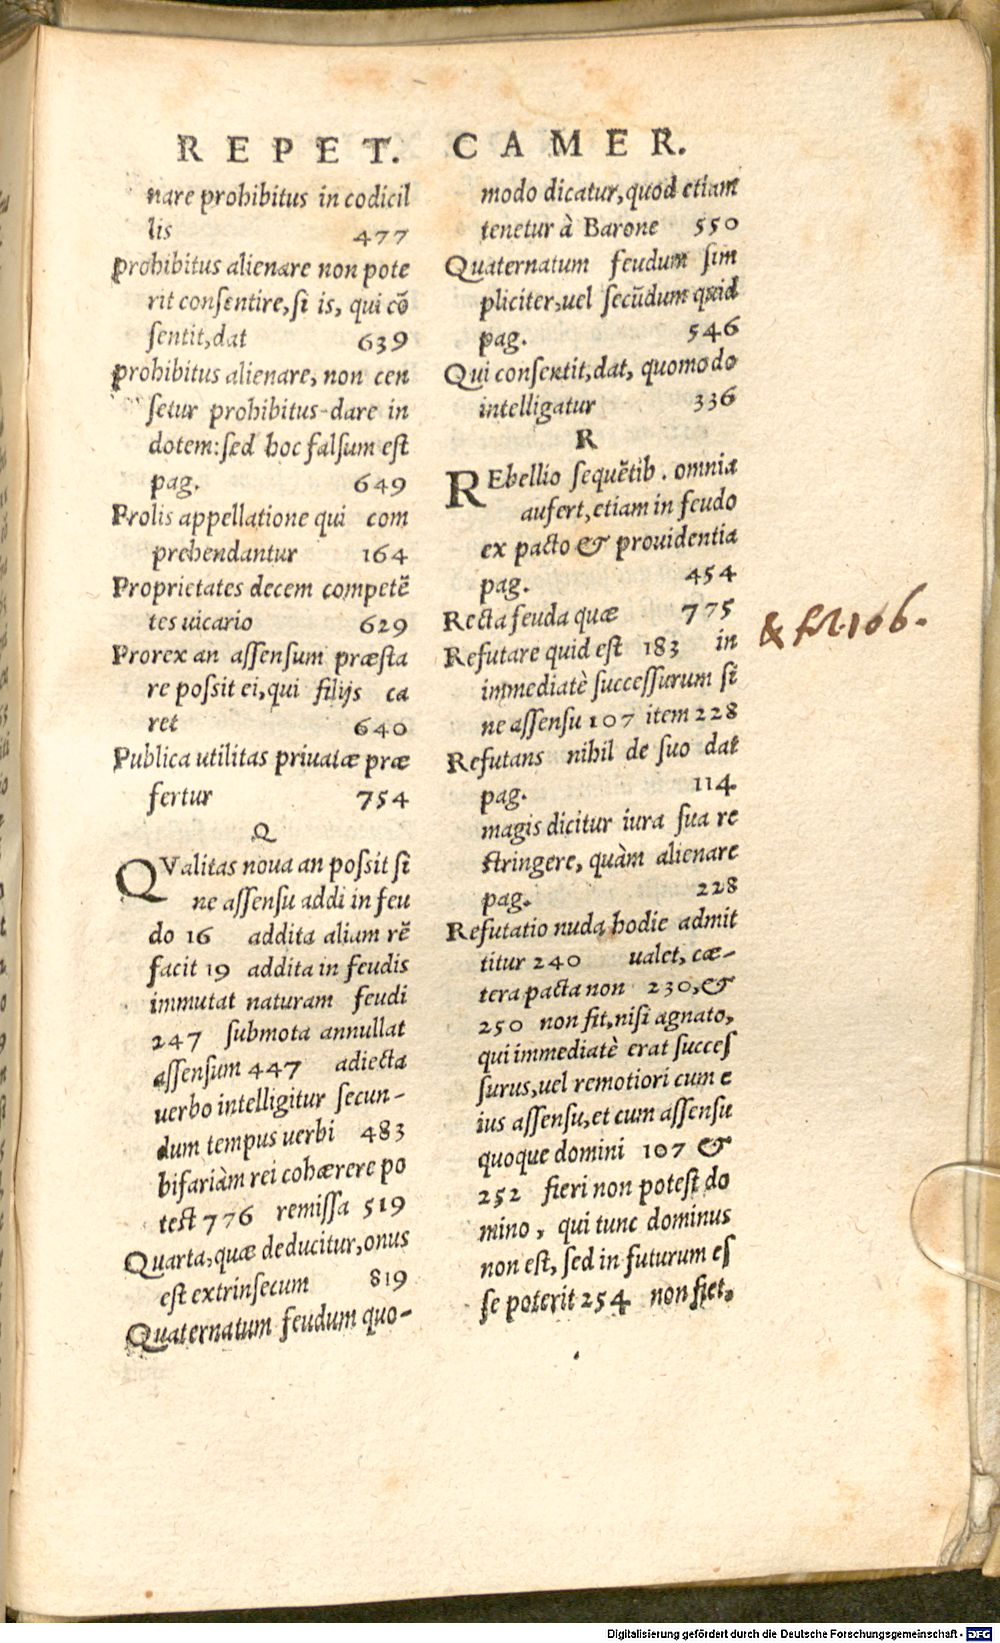 REPET. CAMER.
nare prohibitus in codicil
lis 477
prohibitus alienare non pote
rit consentire, si is, qui cō
sentit, dat 639
prohibitus alienare, non cen
setur prohibitus dare in
dotem: sed hoc falsum est
pag. 649
Prolis appellatione qui com
prehendantur 164
Proprietates decem competẽ
tes uicario 629
Prorex an assensum præsta
re possit ei, qui filijs ca
ret 640
Publica utilitas priuatæ præ
fertur 754
Q
QValitas noua an possit si
ne assensu addi in feu
do 16 addita aliam rẽ
facit 19 addita in feudis
immutat naturam feudi
247 submota annullat
assensum 447 adiecta
uerbo intelligitur secun-
dum tempus uerbi 483
bifariàm rei cohærere po
test 776 remissa 519
Quarta, quæ deducitur, onus
est extrinsecum 819
Quaternatum feudum quo-
modo dicatur, quod etiam
tenetur à Barone 550
Quaternatum feudum sim
pliciter, uel secūdum quid
pag. 546
Qui consentit, dat, quomodo
intelligatur 336
R
REbellio sequẽtib. omnia
aufert, etiam in feudo
ex pacto & prouidentia
pag. 454
Recta feuda quæ 775
Refutare quid est 183 in
immediatè successurum si
ne assensu 107 item 228
Refutans nihil de suo dat
pag. 114
magis dicitur iura sua re
stringere, quàm alienare
pag. 228
Refutatio nuda hodie admit
titur 240 ualet, cæ-
tera pacta non 230, &
250 non fit, nisi agnato,
qui immediatè erat succes
surus, uel remotiori cum e
ius assensu, et cum assensu
quoque domini 107 &
252 fieri non potest do
mino, qui tunc dominus
non est, sed in futurum es
se poterit 254 non fiet.
& fol. 106.
Digitalisierung gefördert durch die Deutsche Forschungsgemeinschaft - DFG